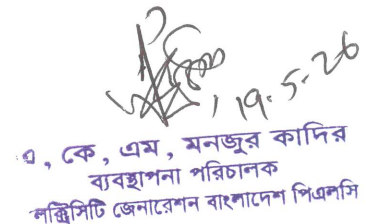 19.5.26
এ, কে, এম, মনজুর কাদির
ব্যবস্থাপনা পরিচালক
লক্ট্রিসিটি জেনারেশন বাংলাদেশ পিএলসি